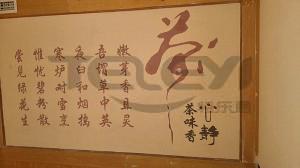 茶
嫩芽香且灵
吾谓草中英
夜臼和烟捣
寒炉对雪烹
惟忧碧粉散
尝见绿花生
心静
茶味香